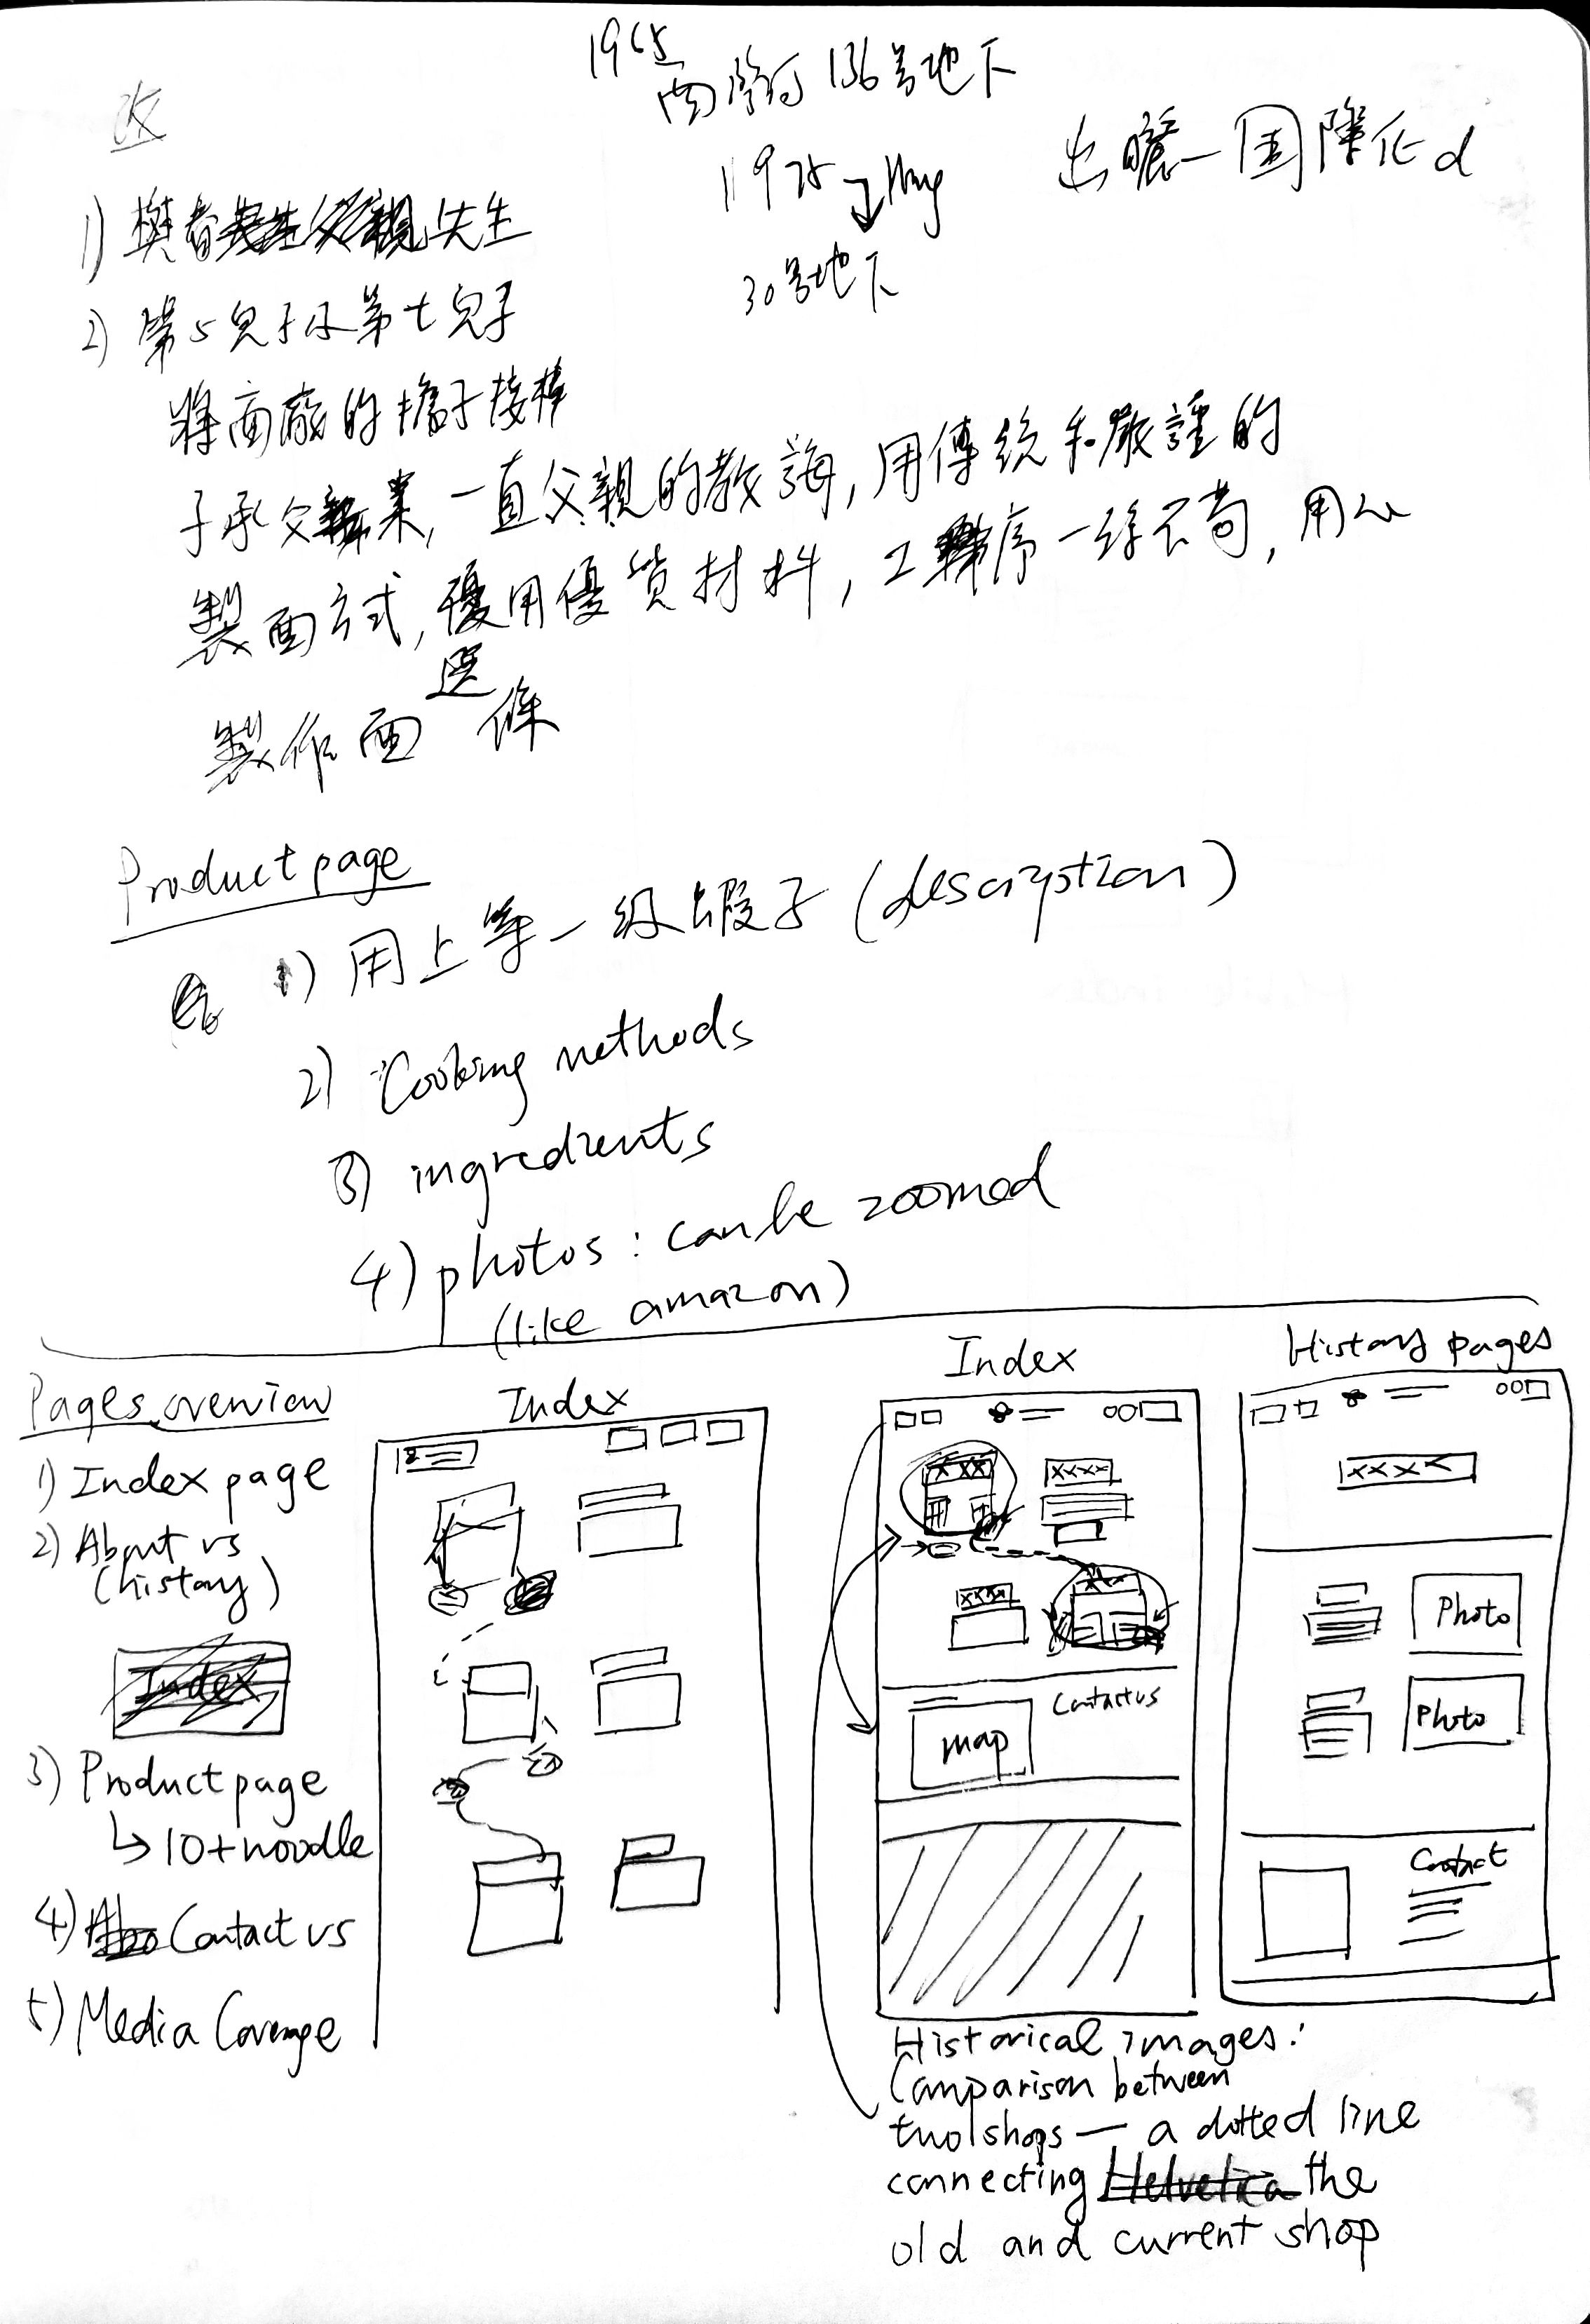 改
1965
136号地下
1975
30号地下
出嚟一国際化d
1) 先生
2) 第5兒子及第七兒子
將面廠的擔子接棒
子承父業,一直父親的教誨,用傳統和嚴謹的
製面方式,優用優質材料,工序一絲不苟,用心
選
製作面條
Product page
1) 用上等一级蝦子 (description)
2) Cooking methods
3) ingredients
4) photos : can be zoomed
(like amazon)
Pages overview
1) Index page
2) About us
(history)
Index
3) Product page
↳ 10+ noodle
4) Contact us
5) Media Coverage
Index
Index
xxx
xxxx
xxxx
Contact us
map
History pages
xxxx
Photo
Photo
Contact
Historical images:
Comparison between
two shops — a dotted line
connecting Helvetica the
old and current shop